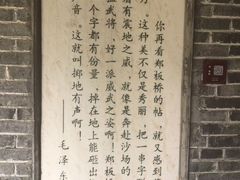 你再看郑板桥的帖，就又感到
力。这种美不仅是秀丽，把一串字
着有震地之威，就像是奔赴沙场的
猛武将，好一派威武之姿啊！郑板
个字都有份量，掉在地上能砸出
音。这就叫掷地有声啊！
——毛泽东